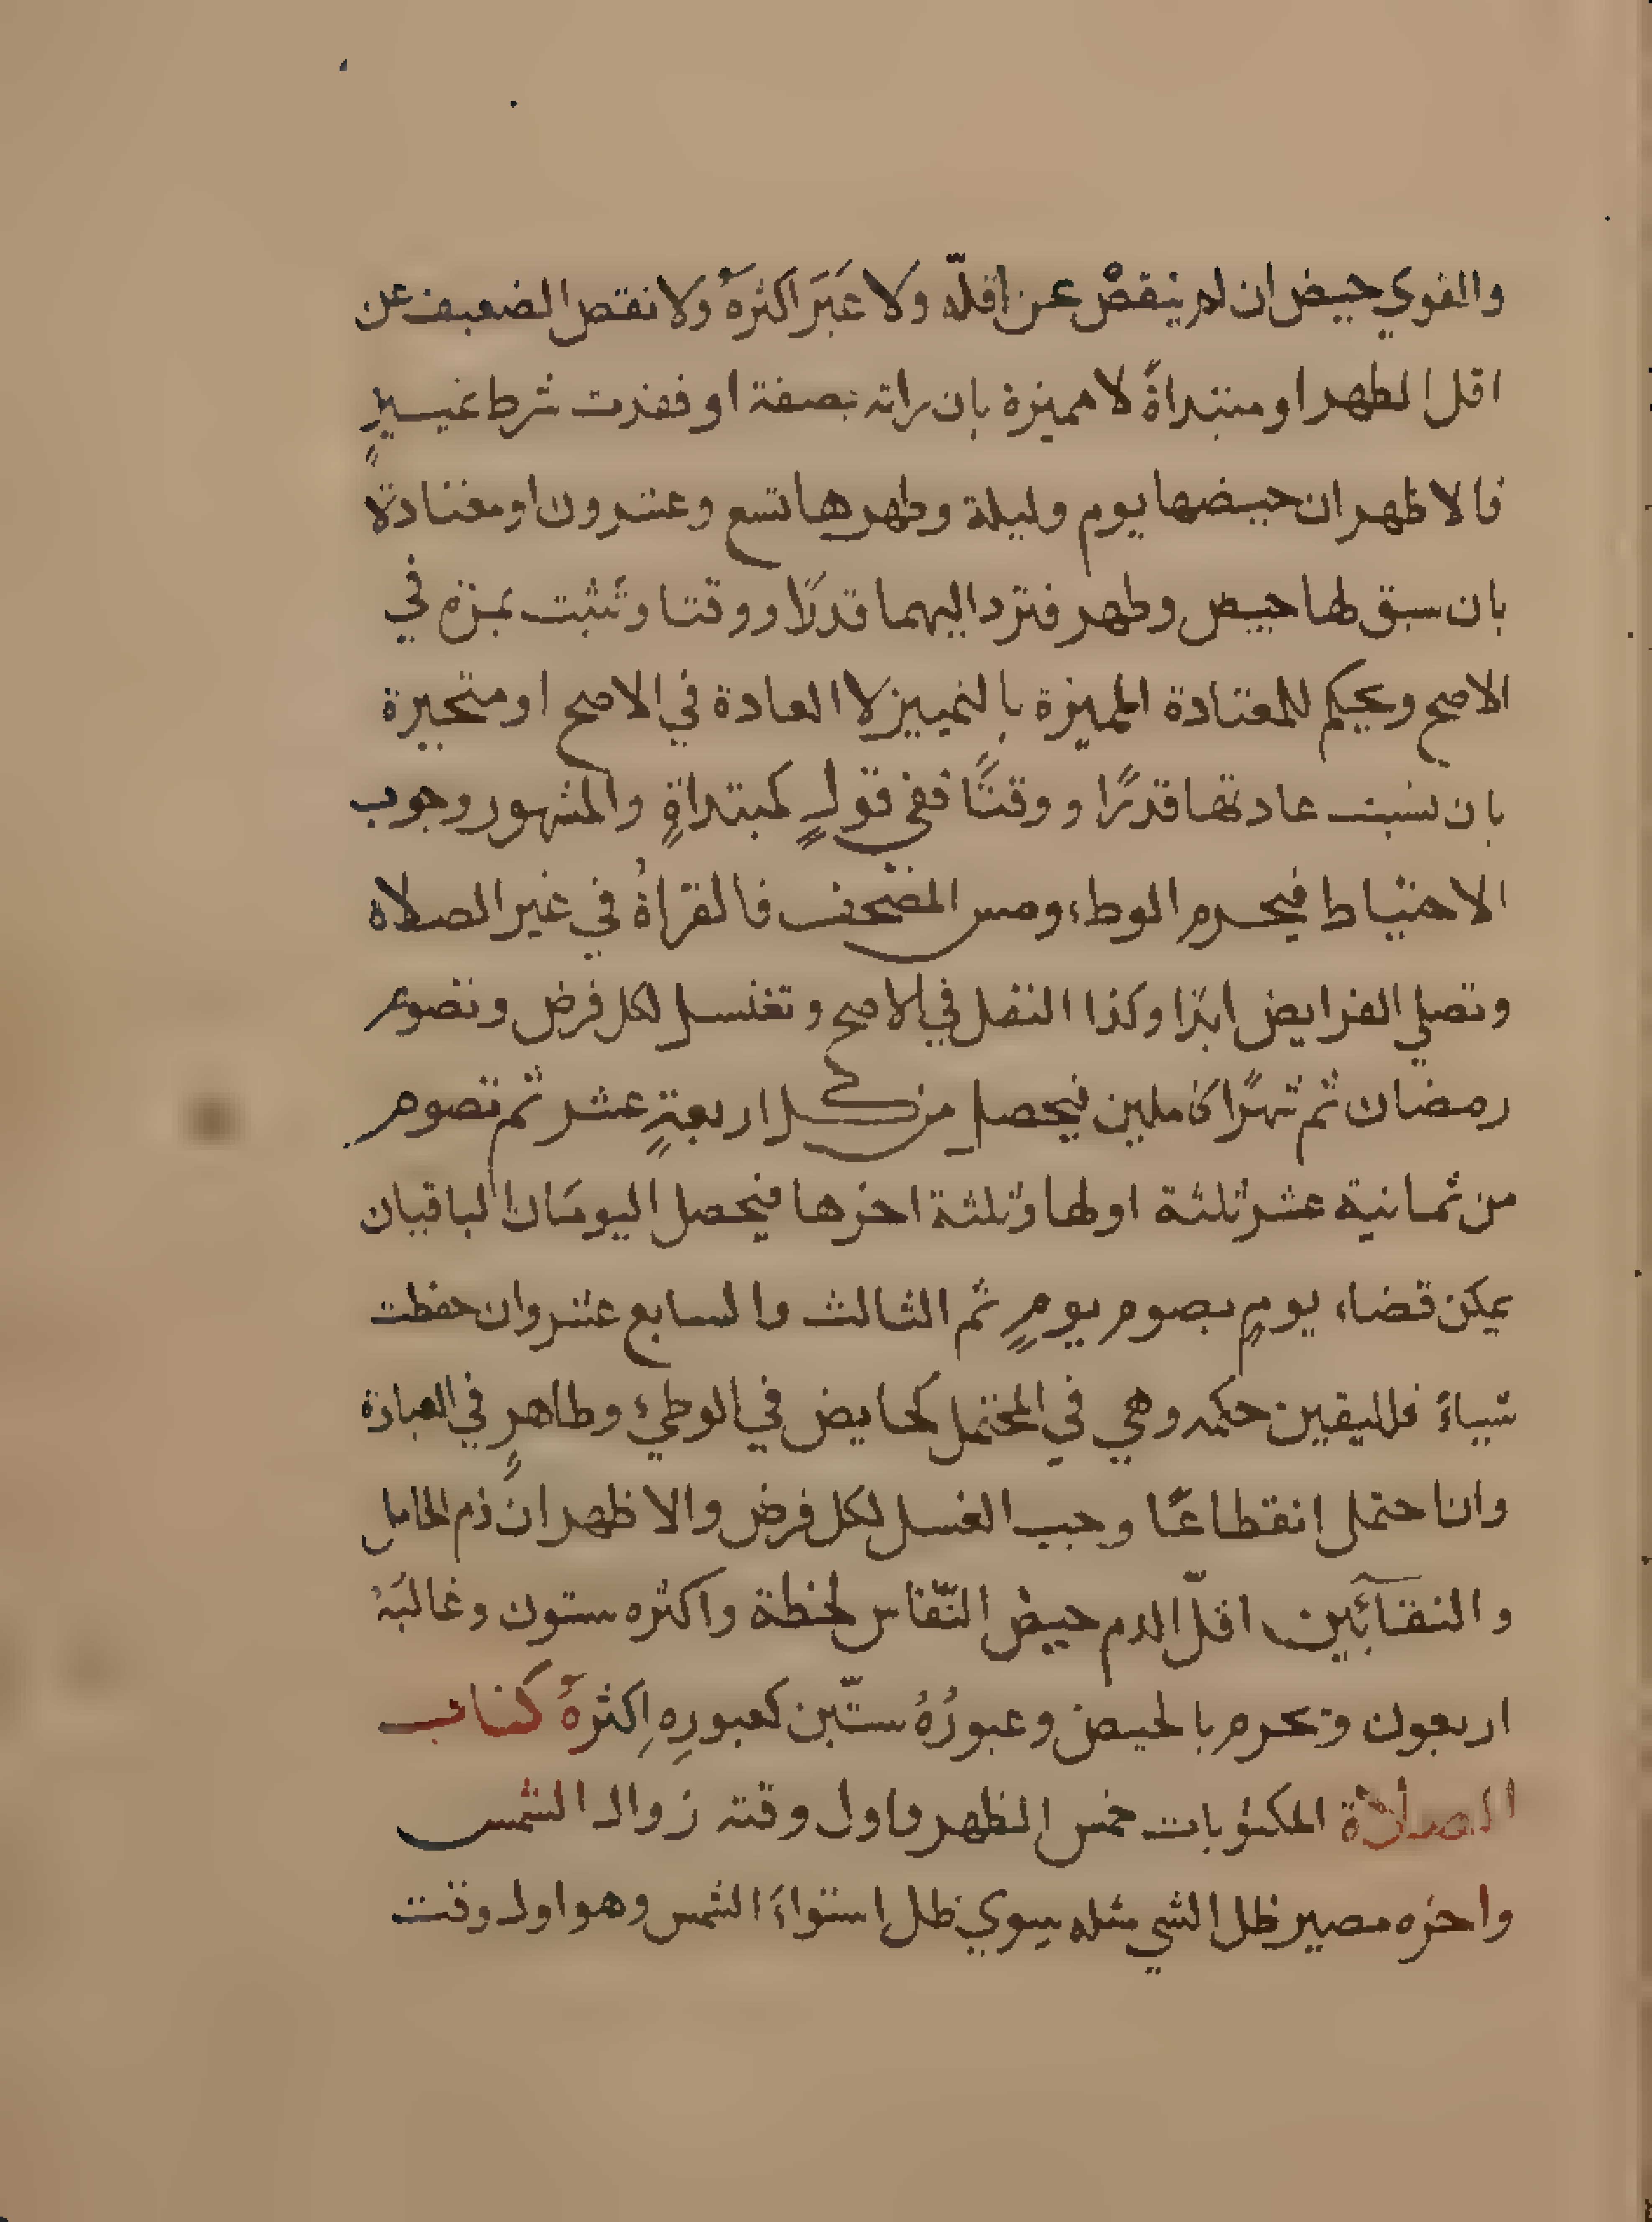 والقوي حيض ان لم ينقصْ عن اقلّه ولا عَبَرَ اكثرهُ ولا نقص الضعيف عن
اقل الطهر او مبتداةً لا مميزة بان راته بصفة او فقدت شرط تمييزٍ
فالاظهر ان حيضها يوم وليلة وطهرها تسع وعشرون او معتادة
بان سبق لها حيض وطهر فترد اليهما قدرًا ووقتا وتثبت بمرة في
الاصح ويحكم للمعتادة المميزة بالتمييز لا العادة في الاصح او متحيرة
بان نسيت عادتها قدرًا ووقتًا ففي قولٍ كمبتداةٍ والمشهور وجوب
الاحتياط فيحرم الوطء ومس المصحف فالقراةُ في غير الصلاة
وتصلي الفرايض ابدًا وكذا النفل في الاصح وتغتسل لكل فرض وتصوم
رمضان ثم شهرًا كاملين فيحصل من كل اربعةٍ عشر ثم تصوم
من ثمانية عشر ثلثة اولها وثلثة اخرها فيحصل اليومَان الباقيان
يمكن قضاء يومٍ بصوم يومٍ ثم الثالث والسابع عشر وان حفظت
شياءً فلليقين حكمه وهي في المحتمل كحايض في الوطيء وطاهرٍ في العبادة
وان احتمل انقطاعًا وجب الغسل لكل فرض والاظهر ان دم الحامل
والنقآئين اقلّ الدم حيض النّفاس لحظة واكثره ستون وغالبُهُ
اربعون ويحرم بالحيض وعبورُهُ ستّين كعبورِهِ اكثرهُ كتاب
الصلاة المكتوبات خمس الظهر واول وقته زوال الشمس
واخره مصير ظل الشي مثله سوي ظل استواءَ الشمس وهو اول وقت